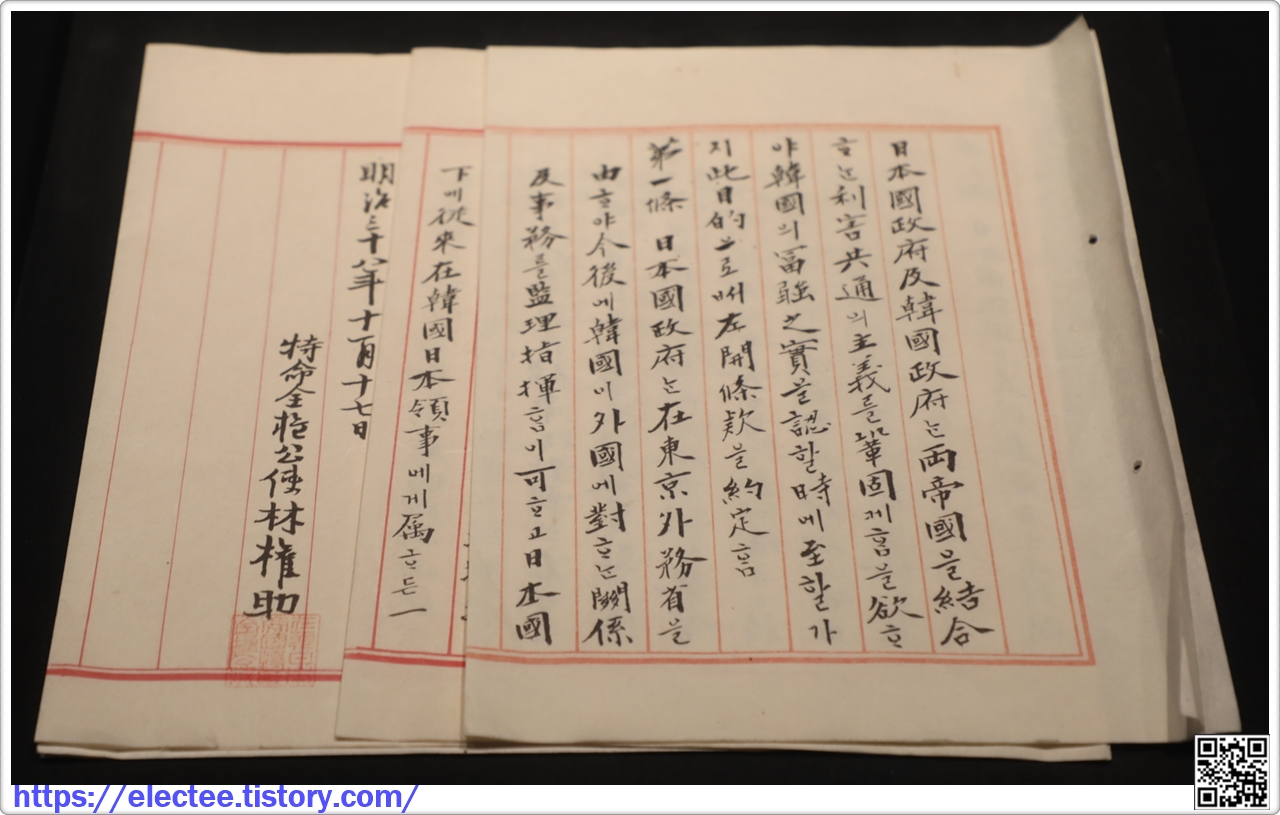 日本國政府及韓國政府는両帝國을結合
ᄒᆞ는利害共通의主義를鞏固케홈을欲ᄒᆞ
야韓國의冨强之實을認할時에至할가
지此目的으로써左開條款을約定홈
第一條 日本國政府는在東京外務省을
由ᄒᆞ야今後에韓國이外國에對ᄒᆞ는關係
及事務를監理指揮홈이可ᄒᆞ고日本國
下에從來在韓國日本領事에게属ᄒᆞ든一
明治三十八年十一月十七日
特命全権公使林権助
https://electee.tistory.com/